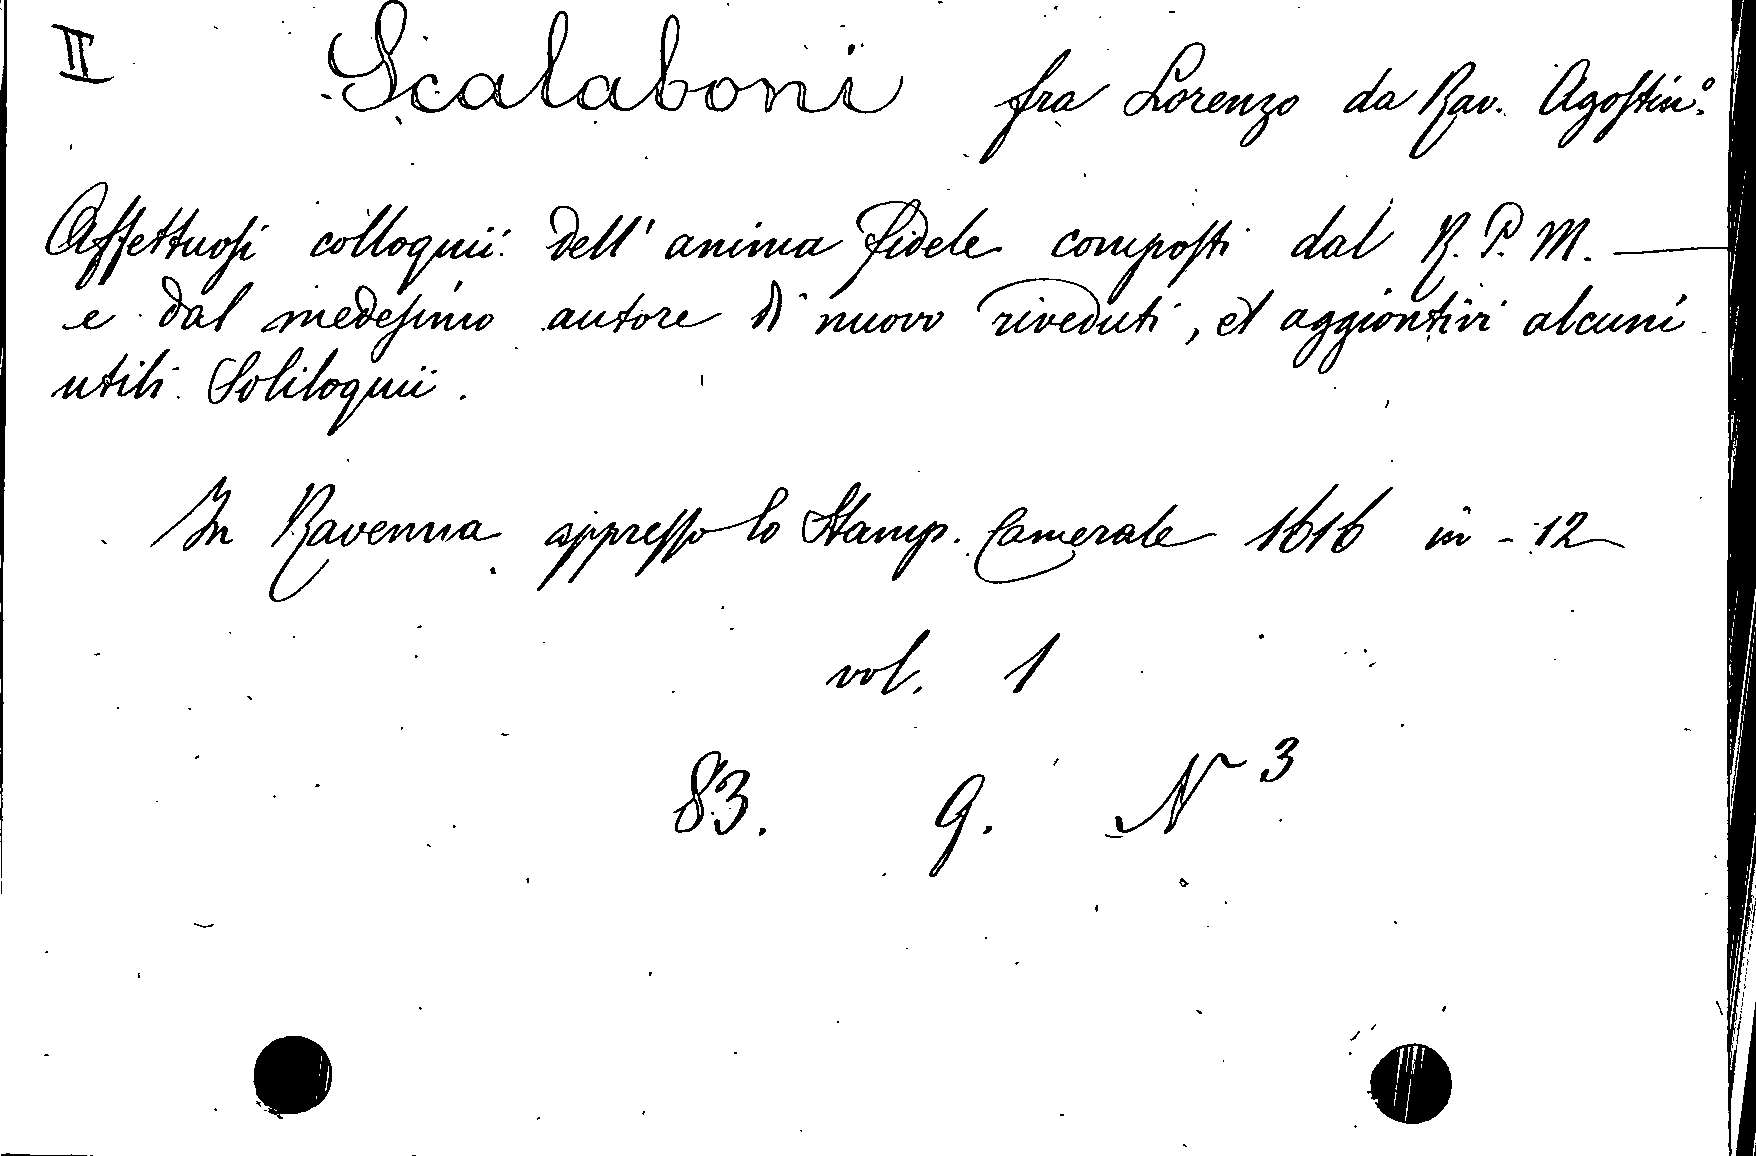 II Scalaboni fra Lorenzo da Rav. Agostin.º
Affettuosi colloquii dell' anima fidele composti dal R. P. M. ——
e dal medesimo autore di nuovo riveduti, et aggiontivi alcuni
utili Soliloquii.
In Ravenna appresso lo Stamp. Camerale 1616 in - 12
vol. 1
83. 9. N 3